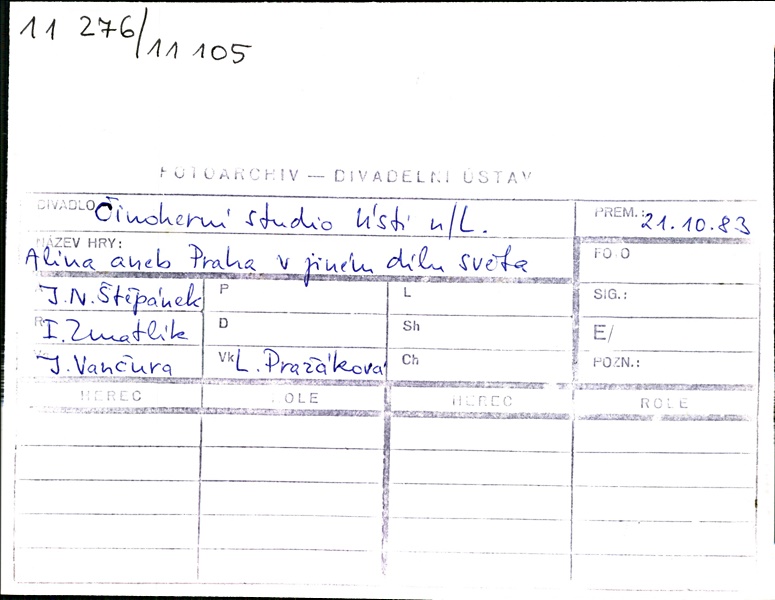 11 276/11 105
FOTOARCHIV — DIVADELNÍ ÚSTAV
DIVADLO Činoherní studio Ústí n/L.
PREM.: 21.10.83
NÁZEV HRY:
Alina aneb Praha v jiném dílu světa
FOTO
J.N. Štěpánek P L SIG.:
R I. Zmatlík D Sh E/
J. Vančura Vk L. Pražáková Ch POZN.:
HEREC ROLE HEREC ROLE